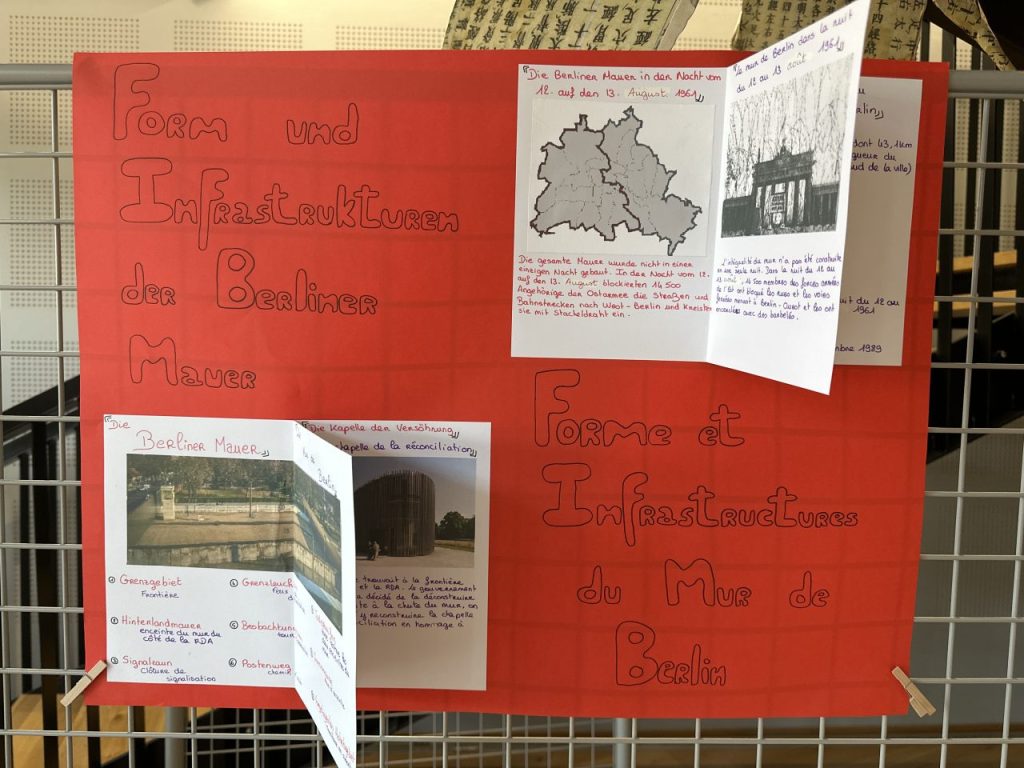 Form und
Infrastrukturen
der Berliner
Mauer
"Die Berliner Mauer in der Nacht vom
12. auf den 13. August 1961"
Die gesamte Mauer wurde nicht in einer
einzigen Nacht gebaut. In der Nacht vom 12.
auf den 13. August blockierten 14 500
Angehörige der Ostarmee die Straßen und
Bahnstrecken nach West-Berlin und kreisten
sie mit Stacheldraht ein.
mur de Berlin dans la nuit
du 12 au 13 août 1961"
L'intégralité du mur n'a pas été construite
en une seule nuit. Dans la nuit du 12 au
13 août, 14 500 membres des forces armées
de l'Est ont bloqué les rues et les voies
ferrées menant à Berlin-Ouest et les ont
encerclées avec des barbelés.
dont 43,1km
gueur du
ud de la ville)
uit du 12 au
1961
mbre 1989
"Die
Berliner Mauer"
① Grenzgebiet
Frontière
② Hinterlandmauer
enceinte du mur du
côté de la RDA
③ Signalzaun
Clôture de
signalisation
④ Grenzleuch
⑤ Beobachtun
tour
⑥ Postenweg
chemi
Berlin"
"Die Kapelle der Versöhnung"
kapelle de la réconciliation"
e trouvait à la frontière
et la RDA. Le gouvernement
a décidé de la déconstruire
ite à la chute du mur, on
y reconstruire la chapelle
ciliation en hommage à
Forme et
Infrastructures
du Mur de
Berlin